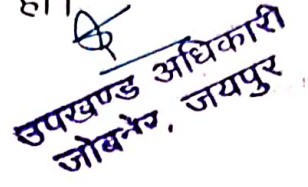 है।
उपखण्ड अधिकारी
जोबनेर, जयपुर